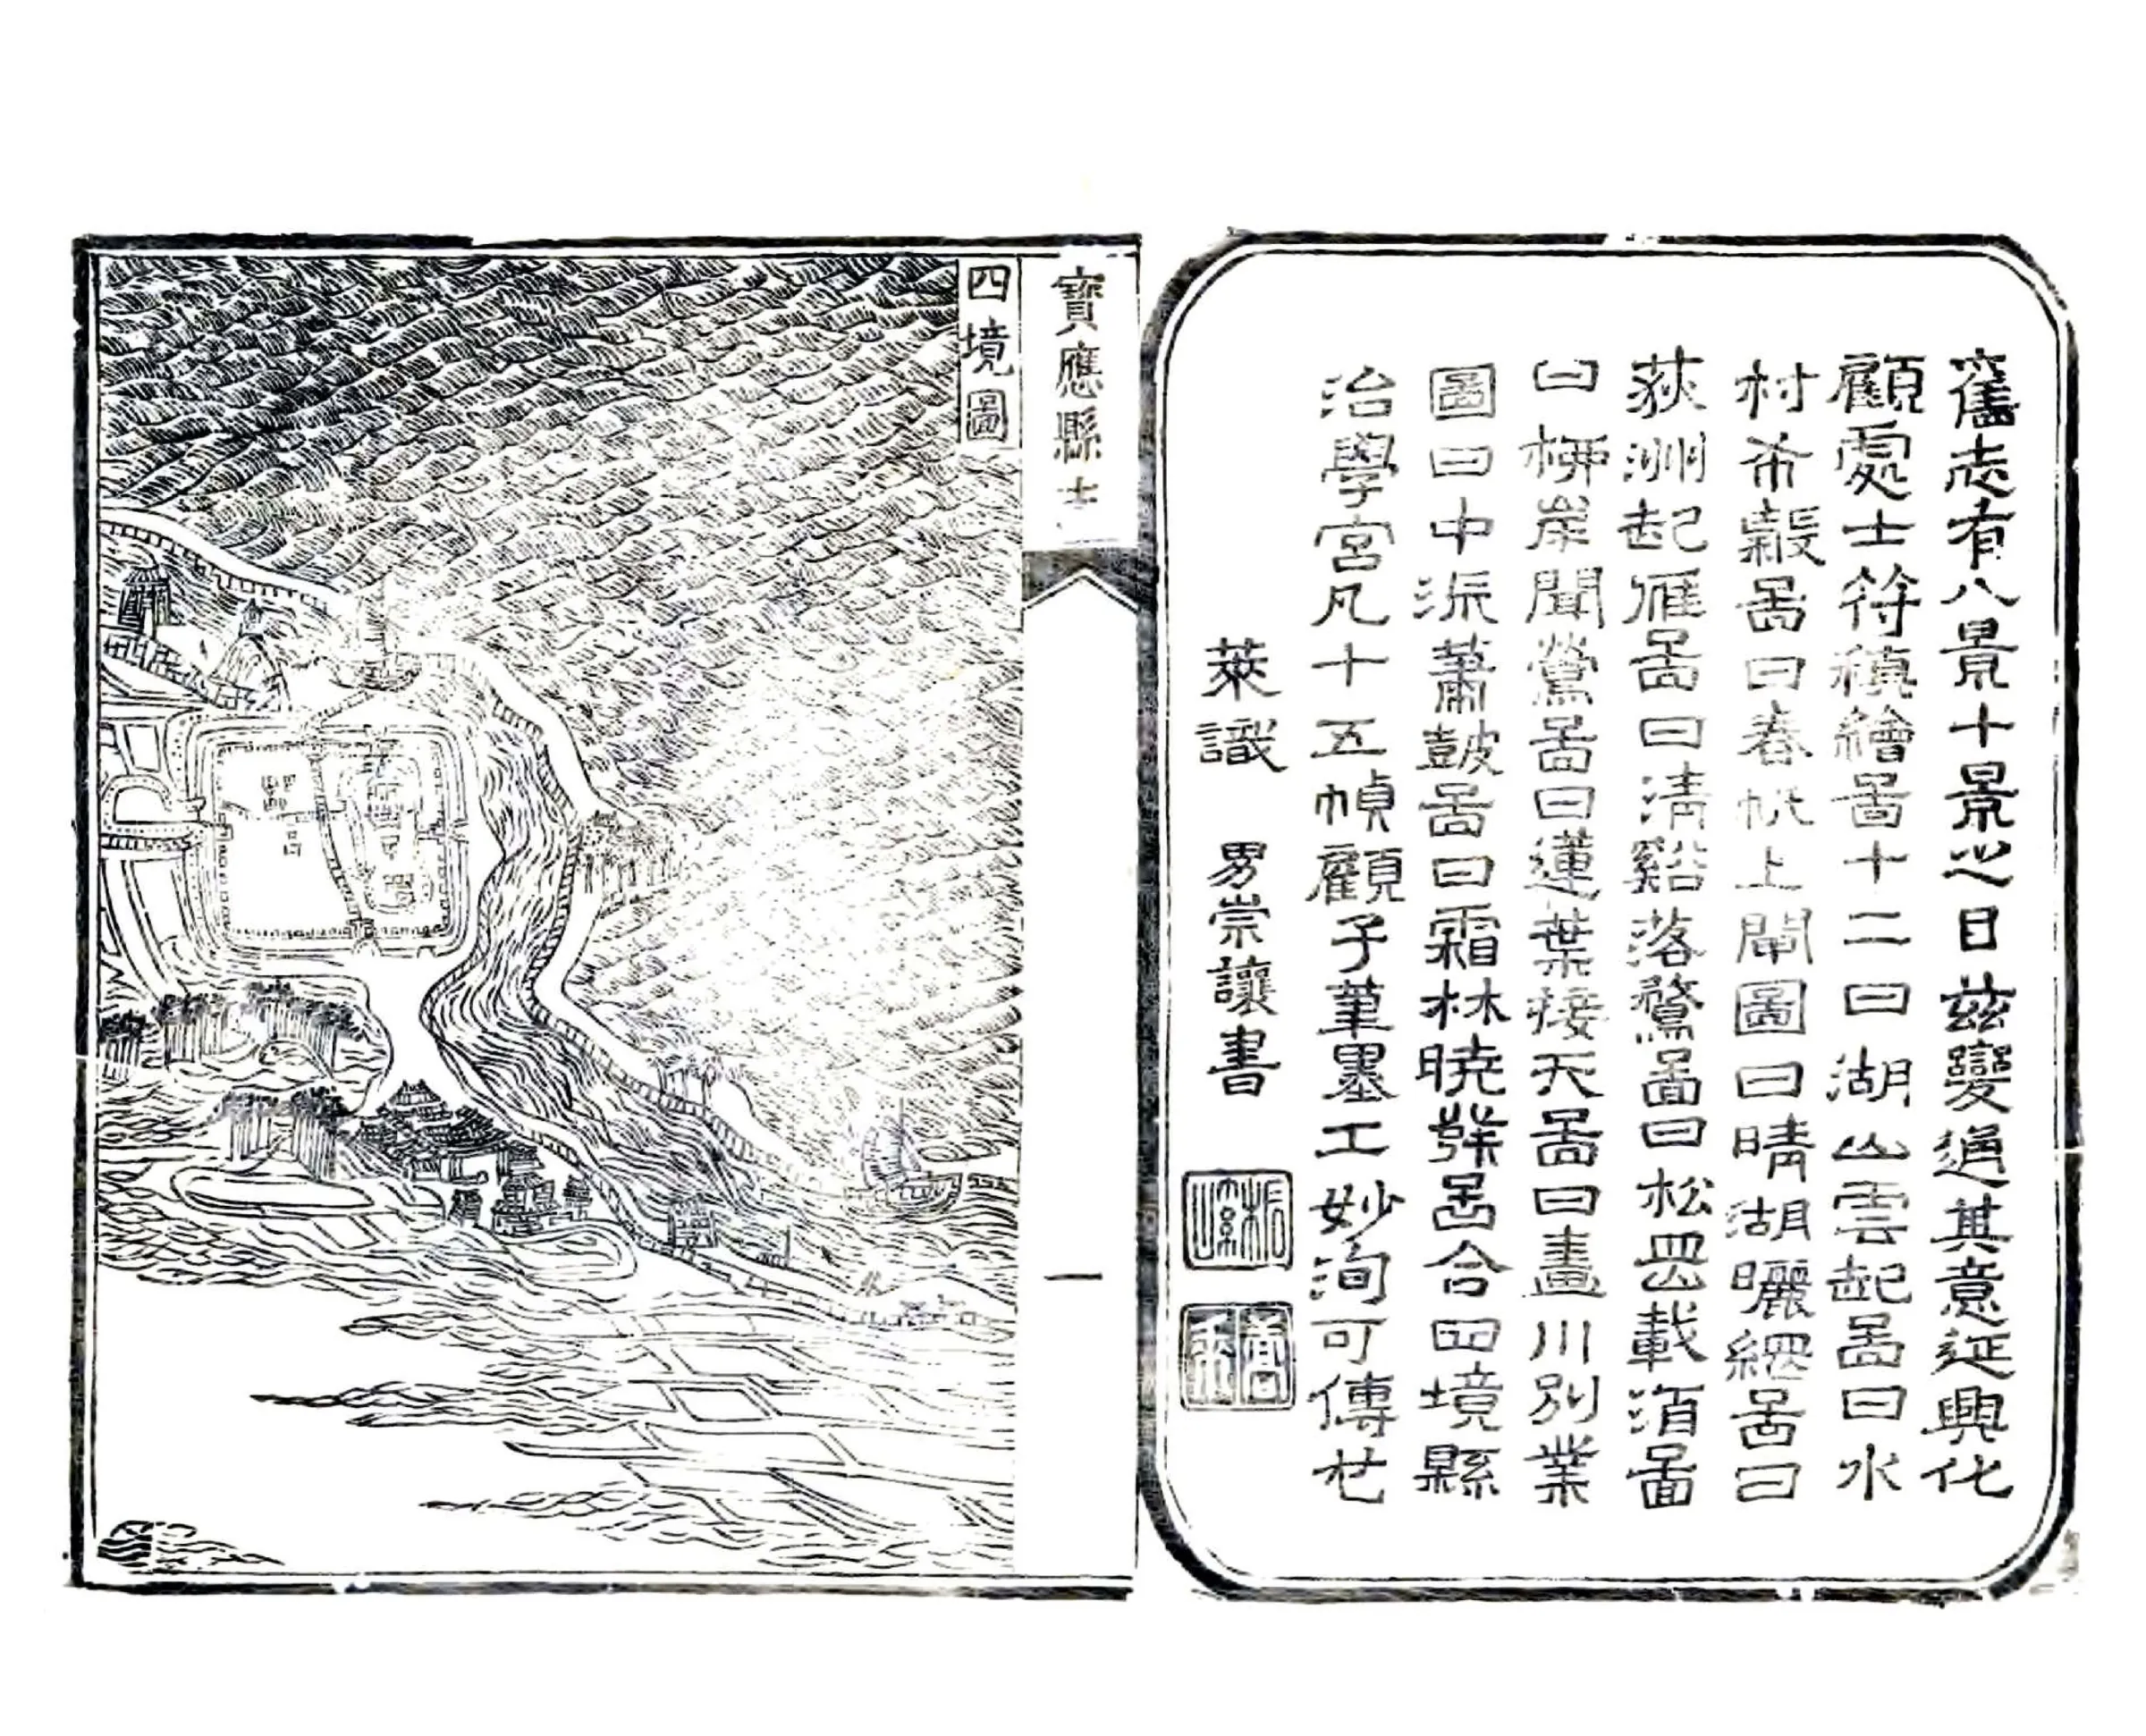 舊志有八景十景之日茲變通其意延興化
顧處士符稹繪啚十二曰湖山雲起啚曰水
村希穀啚曰春帆上閘圖曰晴湖曬網啚曰
荻洲起雁啚曰清谿落鶩啚曰松罡載酒啚
曰柳岸聞鶯啚曰蓮葉接天啚曰畫川別業
圖曰中流蕭鼓啚曰霜林曉發啚合四境縣
治學宮凡十五幀顧子筆墨工妙洵可傳也
萊識 男崇讓書
寶應縣志
一
四境圖